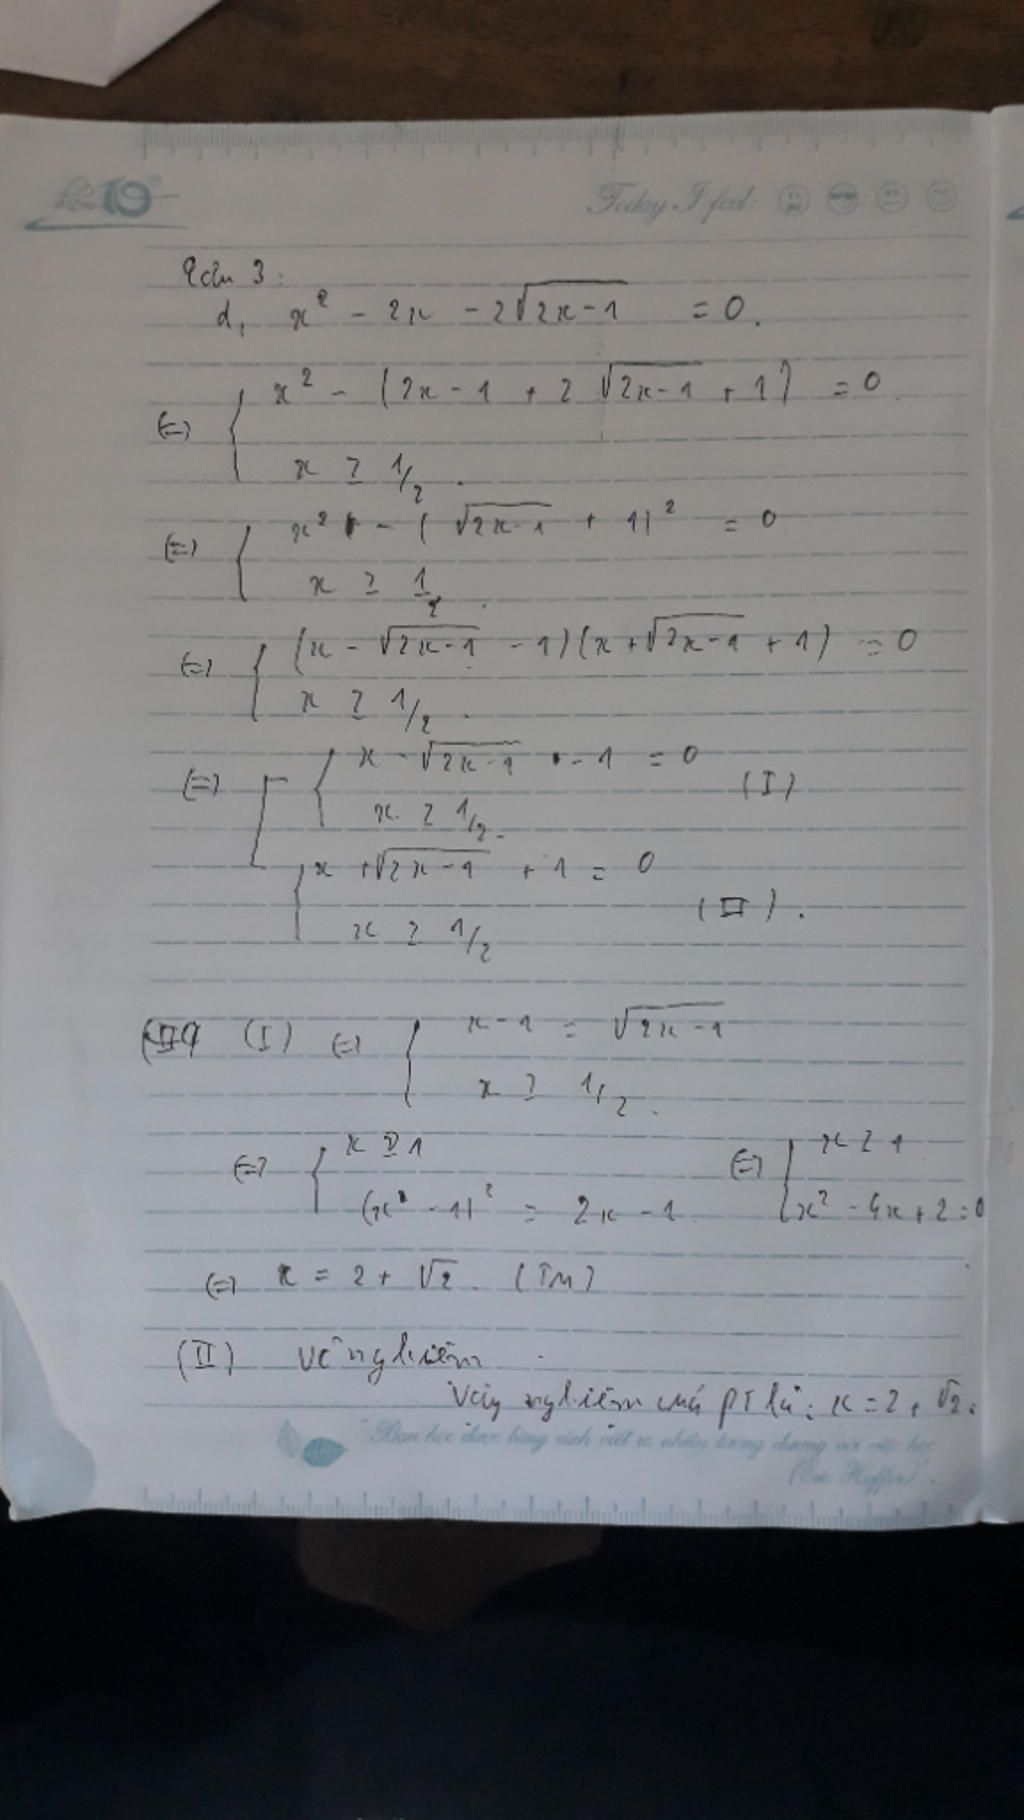 Today I feel:
Câu 3:
d, x² - 2x - 2√(2x-1) = 0.
(=) { x² - (2x - 1 + 2√(2x-1) + 1) = 0
x ≥ 1/2.
(=) { x² - (√(2x-1) + 1)² = 0
x ≥ 1/2.
(=) { (x - √(2x-1) - 1)(x + √(2x-1) + 1) = 0
x ≥ 1/2.
(=) [ { x - √(2x-1) - 1 = 0 (I)
x ≥ 1/2.
{ x + √(2x-1) + 1 = 0 (II).
x ≥ 1/2
(I) (=) { x - 1 = √(2x-1)
x ≥ 1/2.
(=) { x ≥ 1 (=) { x ≥ 1
(x² - 1)² = 2x - 1 x² - 4x + 2 = 0
(=) x = 2 + √2. (TM)
(II) Vô nghiệm.
Vậy nghiệm của PT là: x = 2 + √2.
"Bạn học được bằng cách viết ra nhiều tương đương với việc học"
(Eric Hoffer).